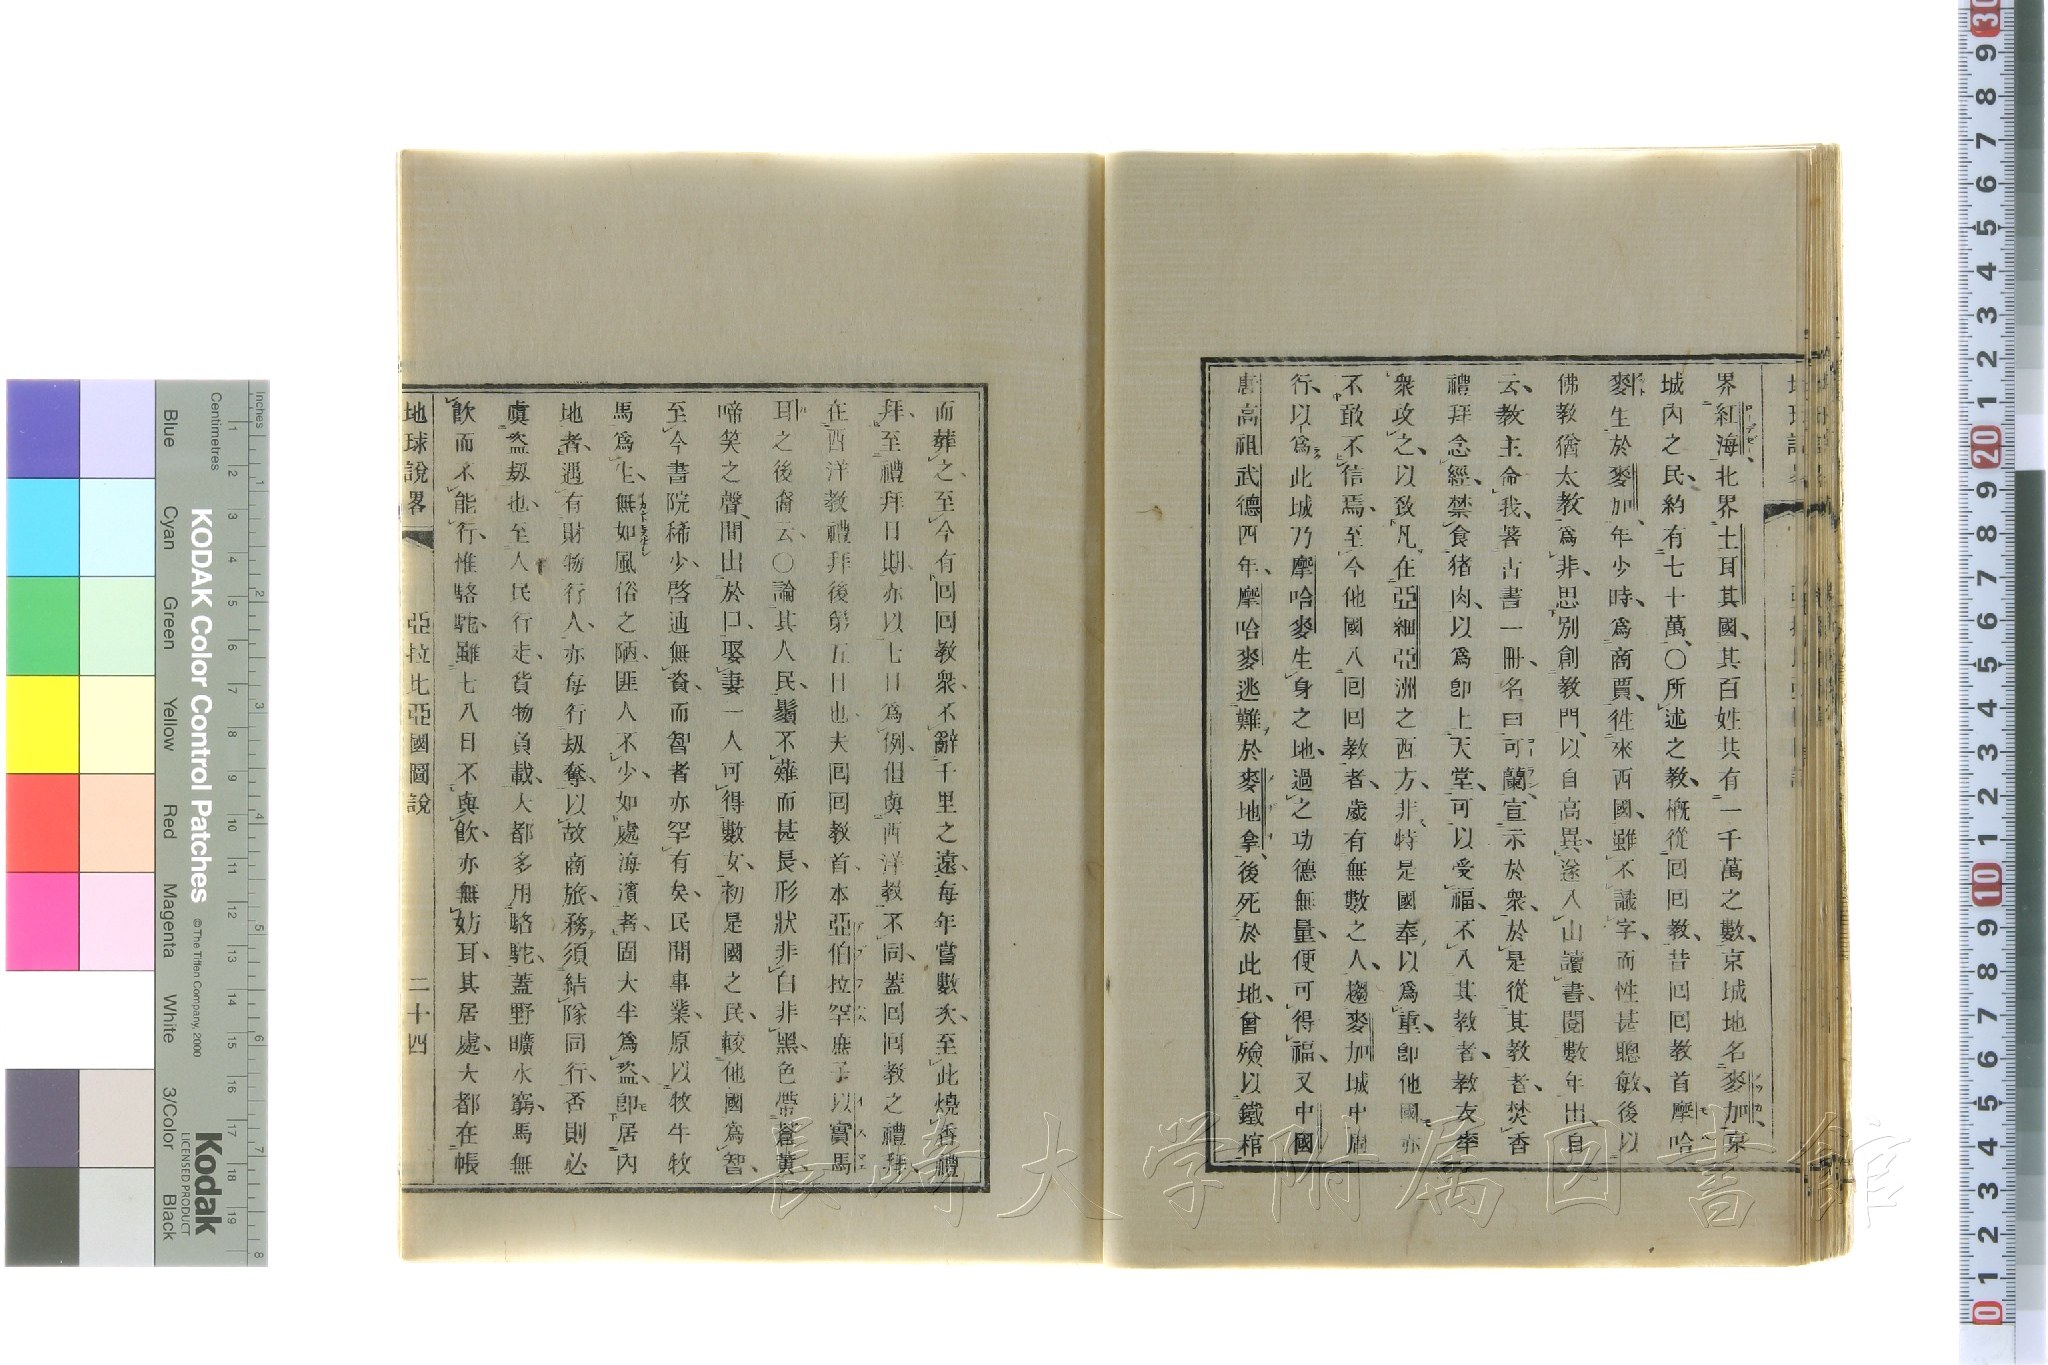 界紅海、北界土耳其國、其百姓共有一千萬之數、京城地名麥加京
城內之民、約有七十萬、〇所述之教、概從回回教、昔回回教首摩哈
麥生於麥加、年少時、爲商賈、往來西國、雖不識字、而性甚聰敏、後以
佛教猶太教爲非、思別創教門、以自高異、遂入山讀書、閱數年出、自
云、教主命我、著古書一冊、名曰可蘭、宣示於衆、於是從其教者、焚香
禮拜念經、禁食猪肉、以爲卽上天堂、可以受福、不入其教者、教友率
衆攻之、以致凡在亞細亞洲之西方、非特是國奉以爲重、卽他國亦
不敢不信焉、至今他國入回回教者、歲有無數之人、趨麥加城中周
行、以爲此城乃摩哈麥生身之地、過之功德無量、便可得福、又中國
唐高祖武德四年、摩哈麥逃難於麥地拿、後死於此地、曾殮以鐵棺
而葬之、至今有回回教衆、不辭千里之遠、每年嘗數次、至此燒香禮
拜、至禮拜日期、亦以七日爲例、但與西洋教不同、蓋回回教之禮拜、
在西洋教禮拜後第五日也、夫回回教首、本亞伯拉罕庶子以實馬
耳之後裔云、〇論其人民、鬚不薙而甚長、形狀非白非黑、色帶蒼黃、
啼笑之聲、間出於口、娶妻一人可得數女、初是國之民、較他國爲智、
至今書院稀少、啓迪無資、而智者亦罕有矣、民間事業、原以牧牛牧
馬爲上、無如風俗之陋、匪人不少、如處海濱者、固大半爲盜、卽居內
地者、遇有財物行人、亦每行刼奪、以故商旅、務須結隊同行、否則必
虞盜刼也、至人民行走、貨物負載、大都多用駱駝、蓋野曠水窮、馬無
飮而不能行、惟駱駝、雖七八日不與飮、亦無妨耳、其居處、大都在帳
地球說畧 亞拉比亞國圖說 二十四
長崎大学附属図書館
KODAK Color Control Patches
© The Tiffen Company, 2000
Kodak
LICENSED PRODUCT
Blue Cyan Green Yellow Red Magenta White 3/Color Black
Centimetres
Inches